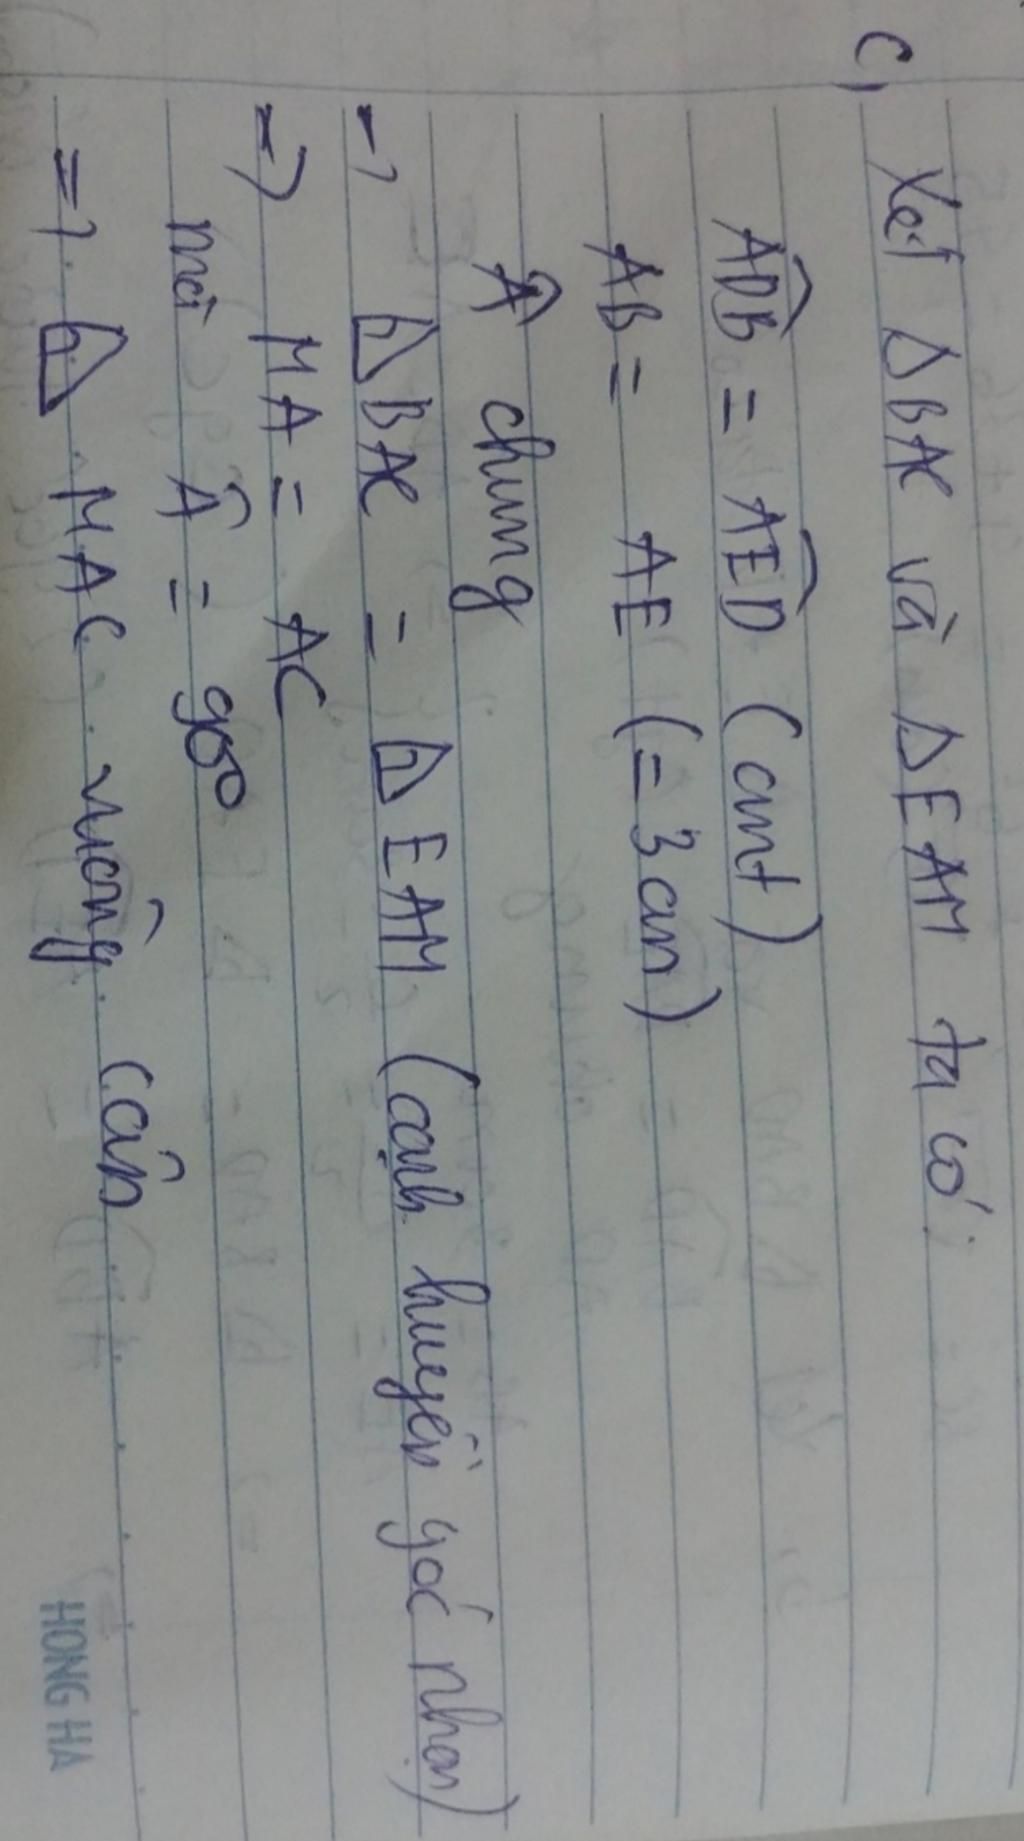 c, Xét ΔBAC và ΔEAM ta có:
ADB = AED (cmt)
AB = AE (= 3cm)
Â chung
=> ΔBAC = ΔEAM (cạnh huyền góc nhọn)
=> MA = AC
mà Â = 90°
=> Δ MAC vuông cân
HONG HA